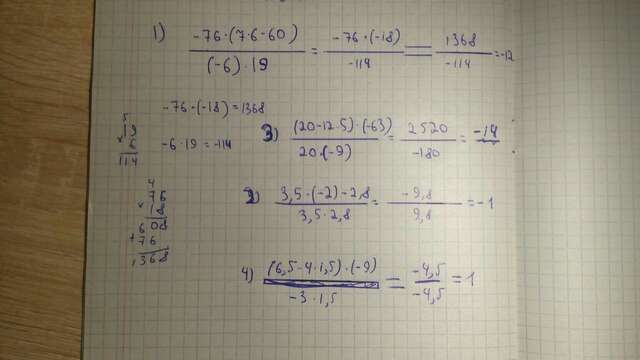 1) \frac{-76·(7·6-60)}{(-6)·19} = \frac{-76·(-18)}{-114} = \frac{1368}{-114} = -12
-76·(-18) = 1368
-6·19 = -114
5
19
× 6
114
4
76
× 18
608
+ 76
1368
3) \frac{(20-12·5)·(-63)}{20·(-9)} = \frac{2520}{-180} = -14
2) \frac{3,5·(-2)-2,8}{3,5·2,8} = \frac{-9,8}{9,8} = -1
4) \frac{(6,5-4·1,5)·(-9)}{-3·1,5} = \frac{-4,5}{-4,5} = 1